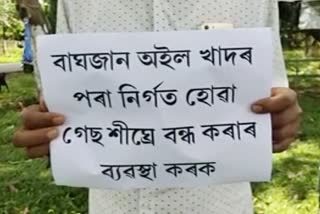 বাঘজান অইল খাদৰ
পৰা নিৰ্গত হোৱা
গেছ শীঘ্ৰে বন্ধ কৰাৰ
ব্যৱস্থা কৰক